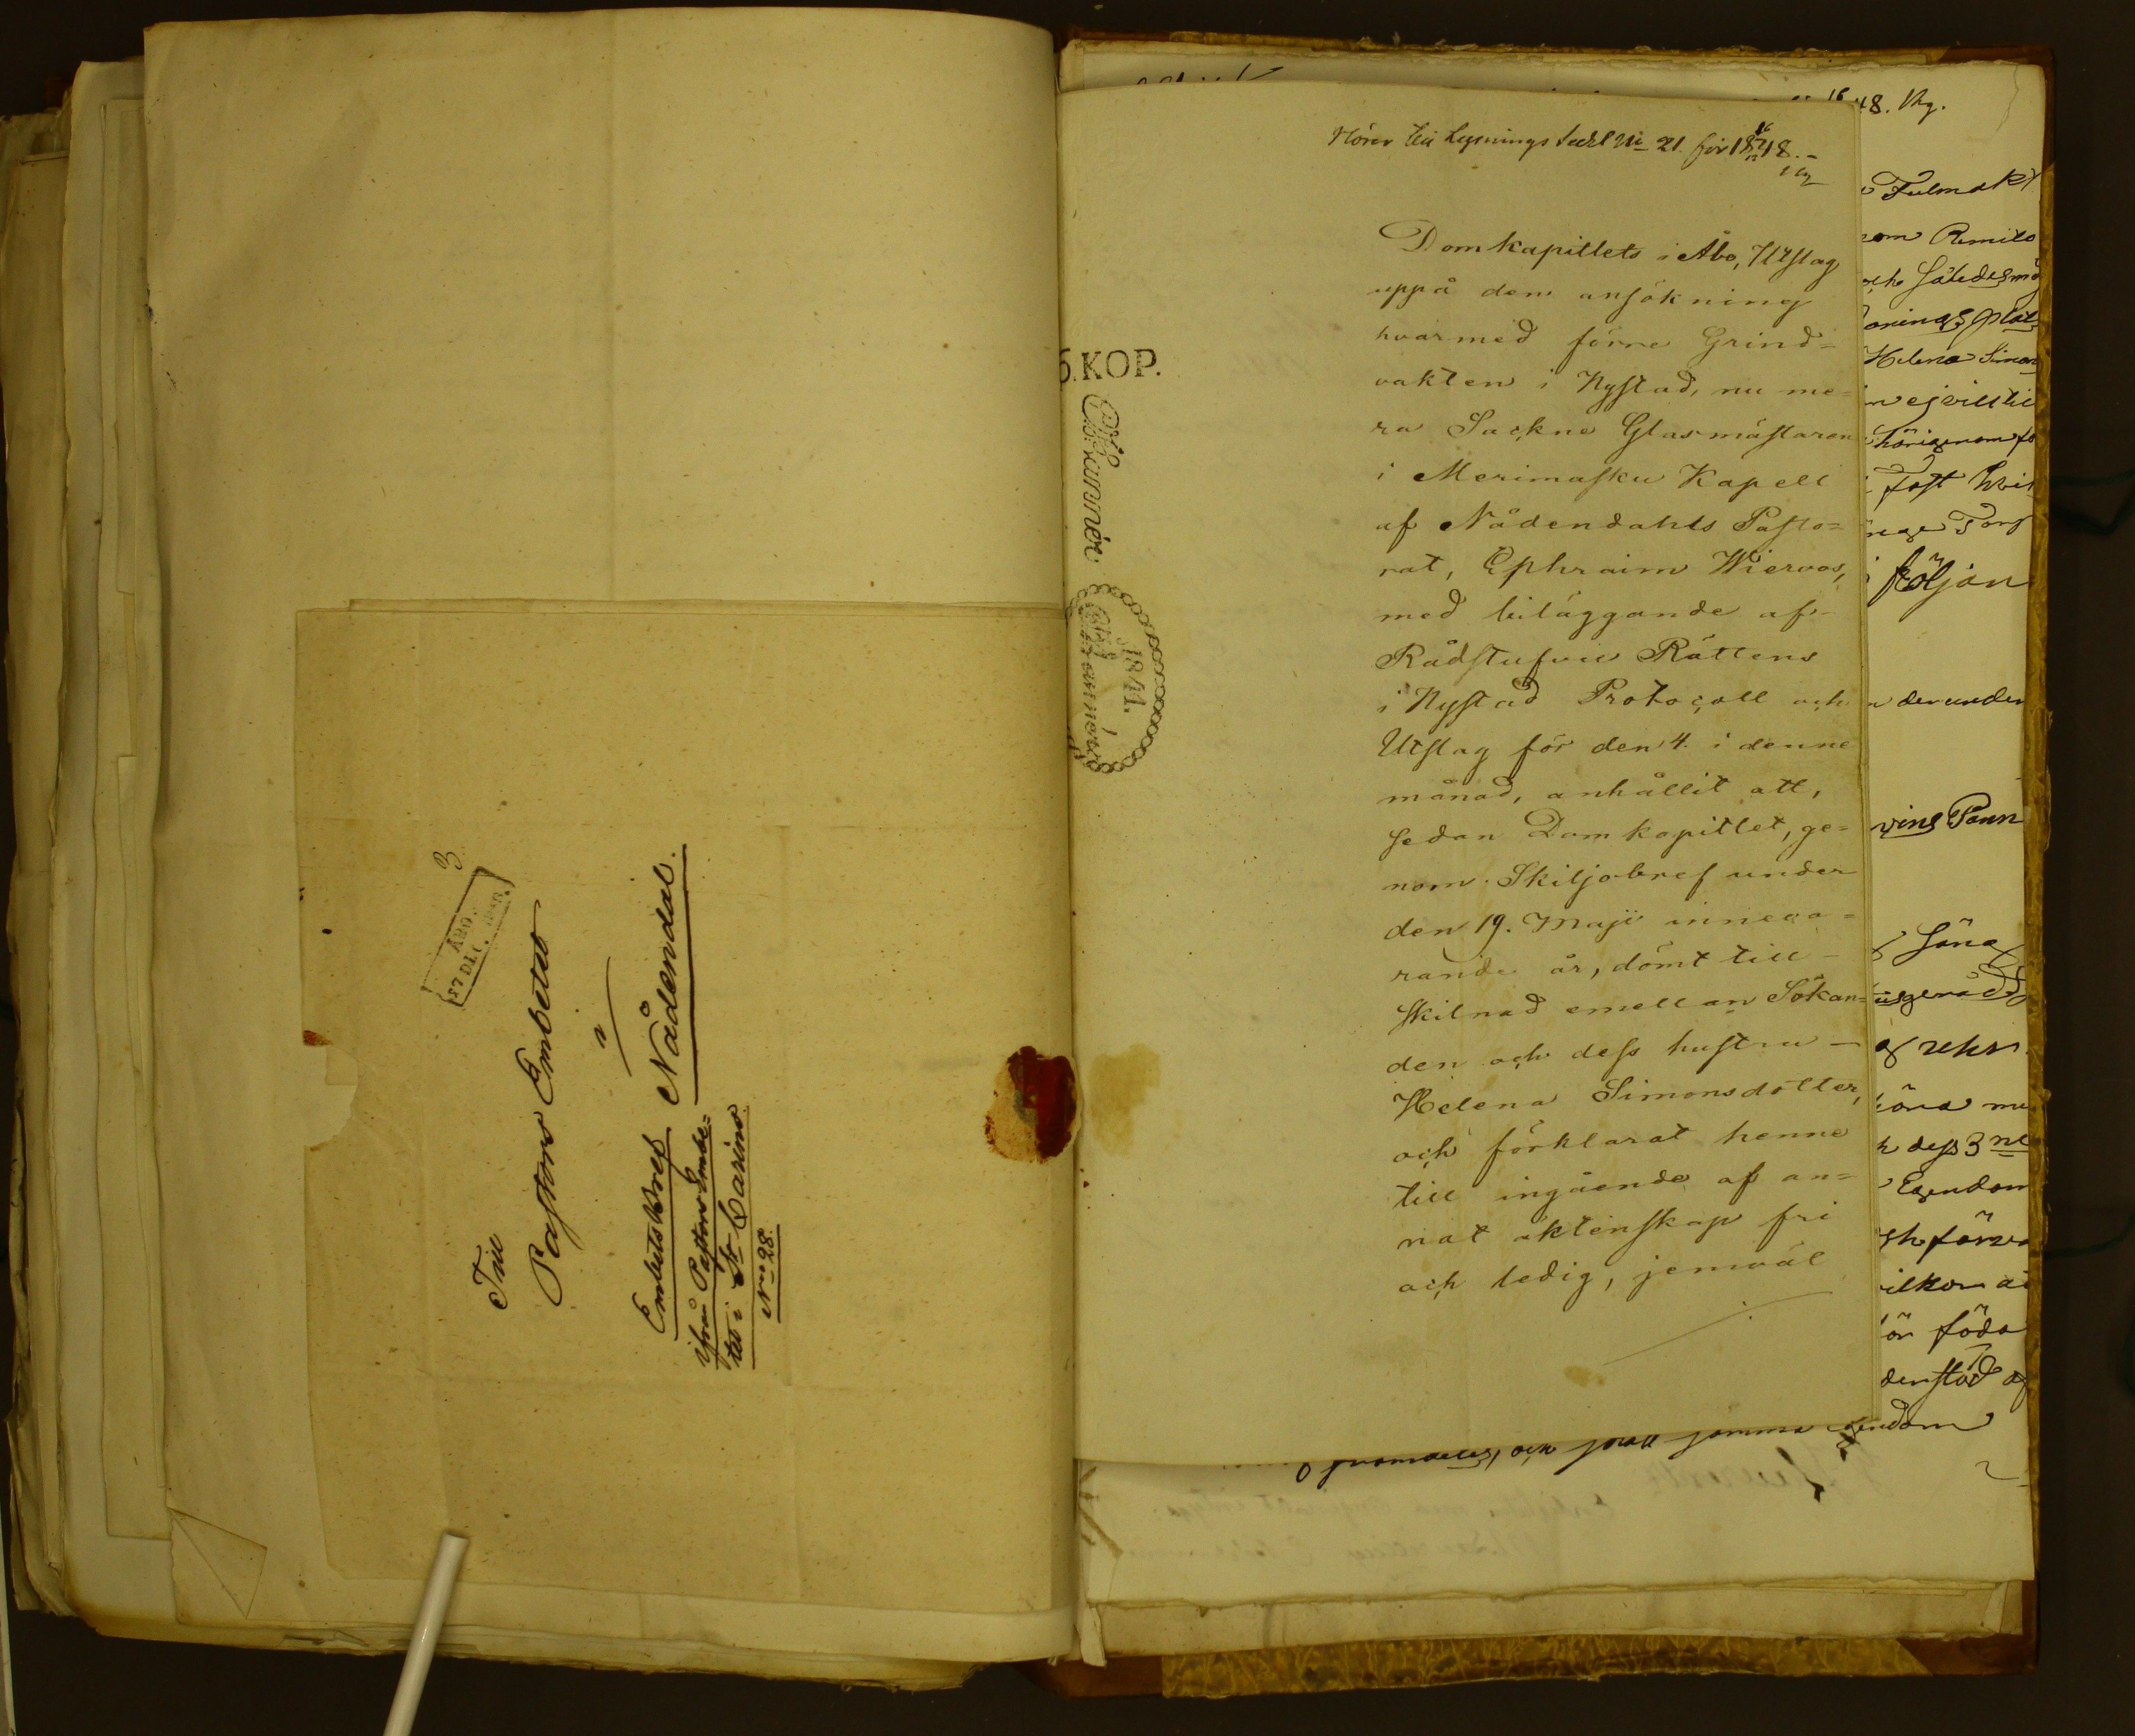 Till
Pastors Embetet
i
Nådendal.
Embetsbref
ifrån Pastors Embe=
tet i St Carins.
No 28.
ÅBO.
27 DEC.
3
6.KOP.
1841.
Hörer till Lysnings Sedl No 21. för 1848.
Domkapitlets i Åbo, Utslag
uppå den ansökning
hvarmed förre Grind=
vakten i Nystad, nu me=
ra Sockne Glasmästaren
i Merimasku Kapell
af Nådendahls Pasto=
rat, Ephraim Wieroos,
med biläggande af
Rådstufvu Rättens
i Nystad Protocoll och
Utslag för den 4. i denne
månad, anhållit att,
sedan Domkapitlet, ge=
nom Skiljobref under
den 19. Maji inneva=
rande år, dömt till
skilnad emellan Sökan=
den och dess hustru
Helena Simonsdotter,
och förklarat henne
till ingående af an=
nat äktenskap fri
och ledig, jemväl
48.
Fulmakt
som Rimito
och således
Helena Simon
ej vill till
härigenom
följan
derunder
dess 3ne
Egendom
föda
och samma egendom